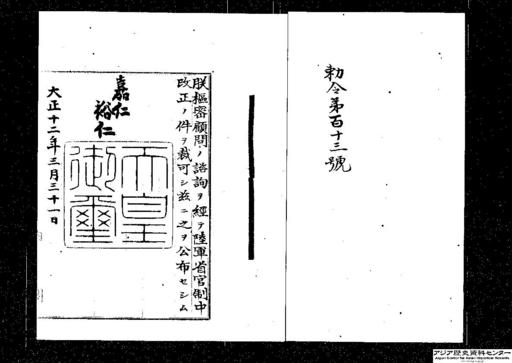 勅令第百十三號
朕樞密顧問ノ諮詢ヲ經テ陸軍省官制中
改正ノ件ヲ裁可シ茲ニ之ヲ公布セシム
嘉仁
裕仁
天皇
御璽
大正十二年三月三十一日
アジア歴史資料センター
Japan Center for Asian Historical Records